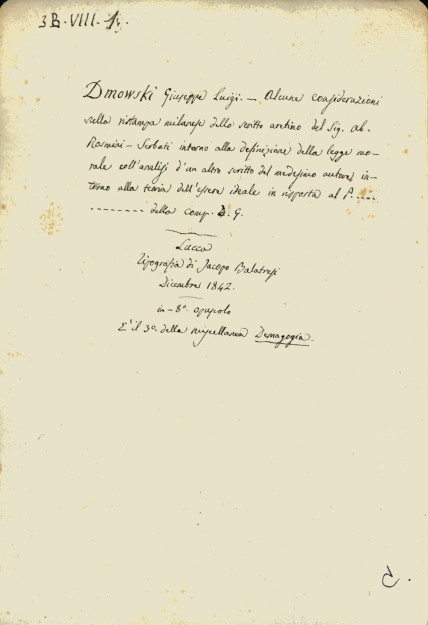 3B-VIII-19.
Dmowski Giuseppe Luigi. — Alcune considerazioni
sulla ristampa milanese dello scritto aretino del Sig. Ab.
Rosmini-Serbati intorno alla definizione della legge mo-
rale coll'analisi d'un altro scritto del medesimo autore, in-
torno alla teoria dell'essere ideale in risposta al P......
-------- della comp. d. G.
Lucca
Tipografia di Jacopo Balatresi
Dicembre 1842.
in-8°. opuscolo
E' il 3°. della miscellanea Demagogia.